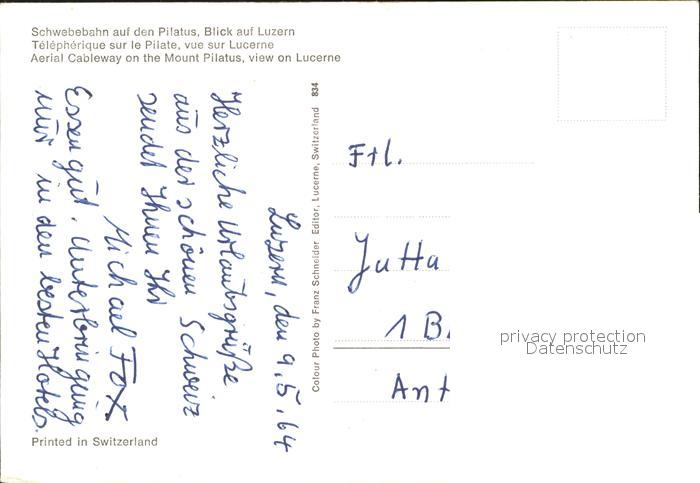 Schwebebahn auf den Pilatus, Blick auf Luzern
Téléphérique sur le Pilate, vue sur Lucerne
Aerial Cableway on the Mount Pilatus, view on Lucerne
Luzern, den 9.5.64
Herzliche Urlaubsgrüße
aus der schönen Schweiz
sendet Ihnen Ihr
Michael Fox
Essen gut. Unterbringung
nur in den besten Hotels.
Printed in Switzerland
Colour Photo by Franz Schneider Editor, Lucerne, Switzerland 834
Frl.
Jutta
1 B
Ant
privacy protection
Datenschutz